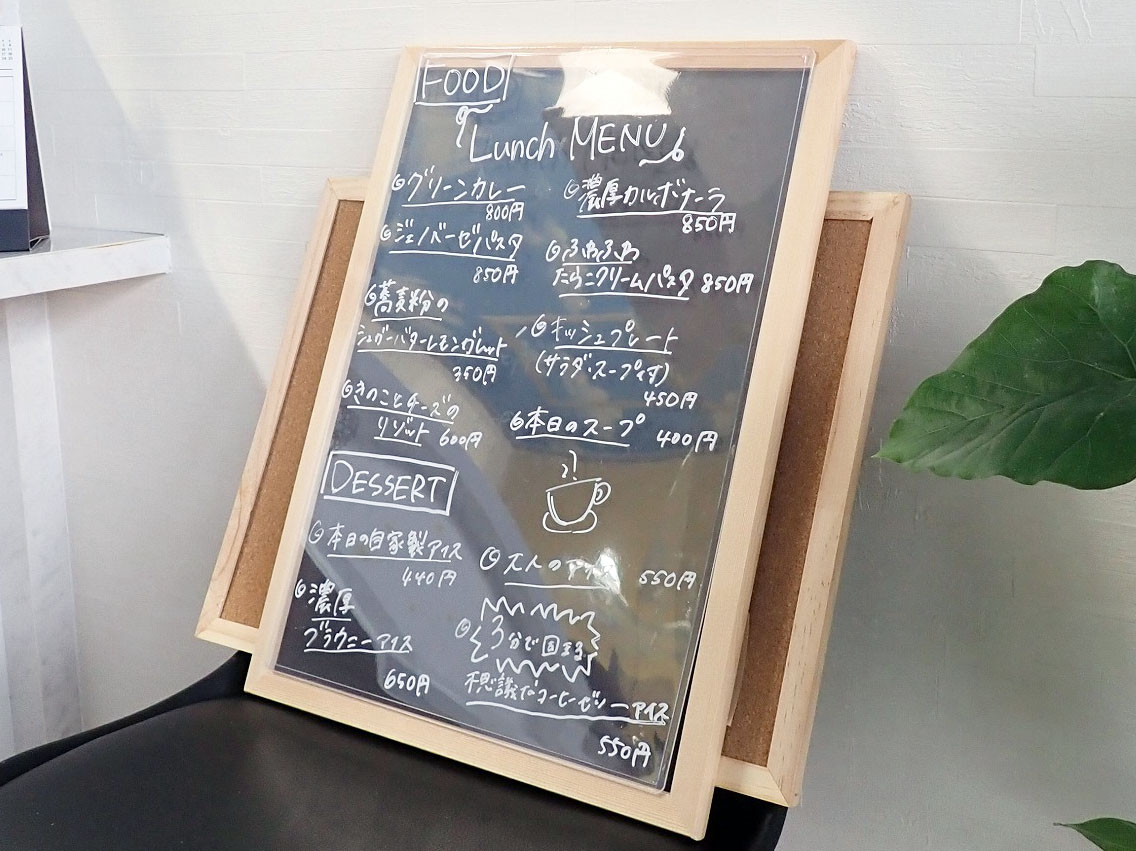 FOOD
Lunch MENU
グリーンカレー
800円
濃厚カルボナーラ
850円
ジェノベーゼパスタ
850円
ふわふわ
たらこクリームパスタ 850円
蕎麦粉の
シュガーバターレモンガレット
350円
キッシュプレート
(サラダ・スープ付)
450円
きのことチーズの
リゾット 600円
本日のスープ 400円
DESSERT
本日の自家製アイス
440円
大人のアイス 550円
濃厚
ブラウニーアイス
650円
3分で固まる
不思議なコーヒーゼリーアイス
550円